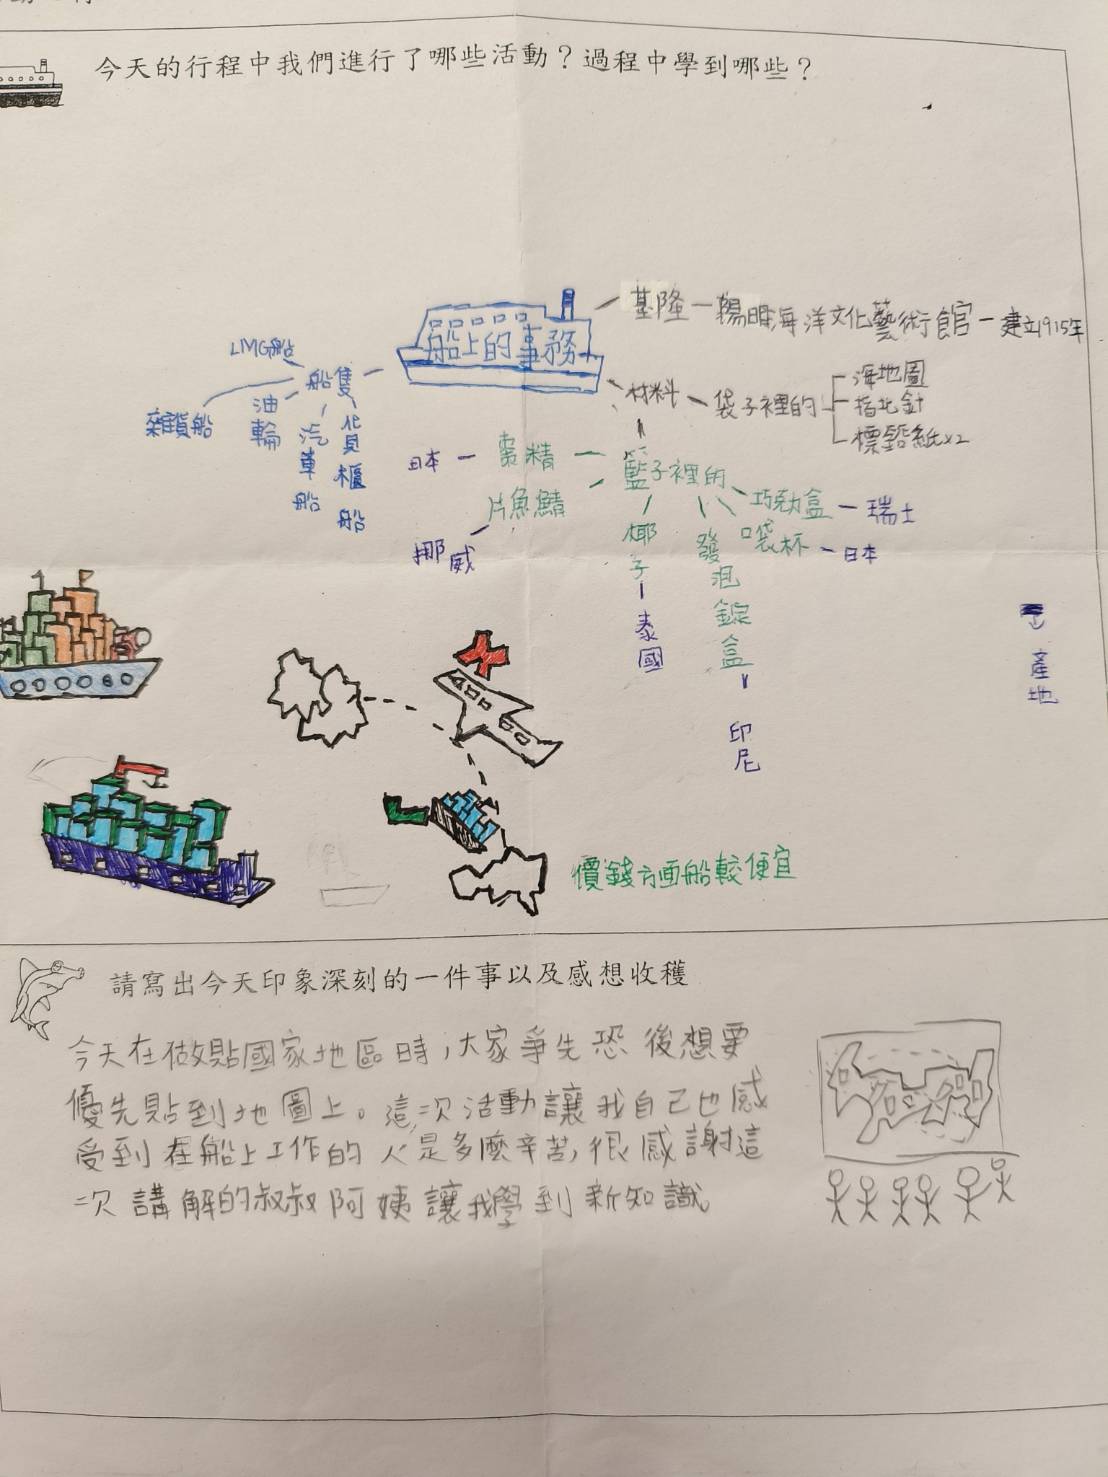 今天的行程中我們進行了哪些活動？過程中學到哪些？
船上的事務
基隆－陽明海洋文化藝術館－建立1915年
材料－袋子裡的
海地圖
指北針
標鉛紙x2
船隻
LMG船
雜貨船
油輪
汽車船
貨櫃船
籃子裡的
棗精－日本
片魚鯖
挪威
椰子－泰國
發泡錠盒－印尼
巧勁盒－瑞士
口袋杯－日本
產地
價錢方面船較便宜
請寫出今天印象深刻的一件事以及感想收穫
今天在做貼國家地區時，大家爭先恐後想要
優先貼到地圖上。這次活動讓我自己也感
受到在船上工作的人是多麼辛苦，很感謝這
次講解的叔叔阿姨讓我學到新知識